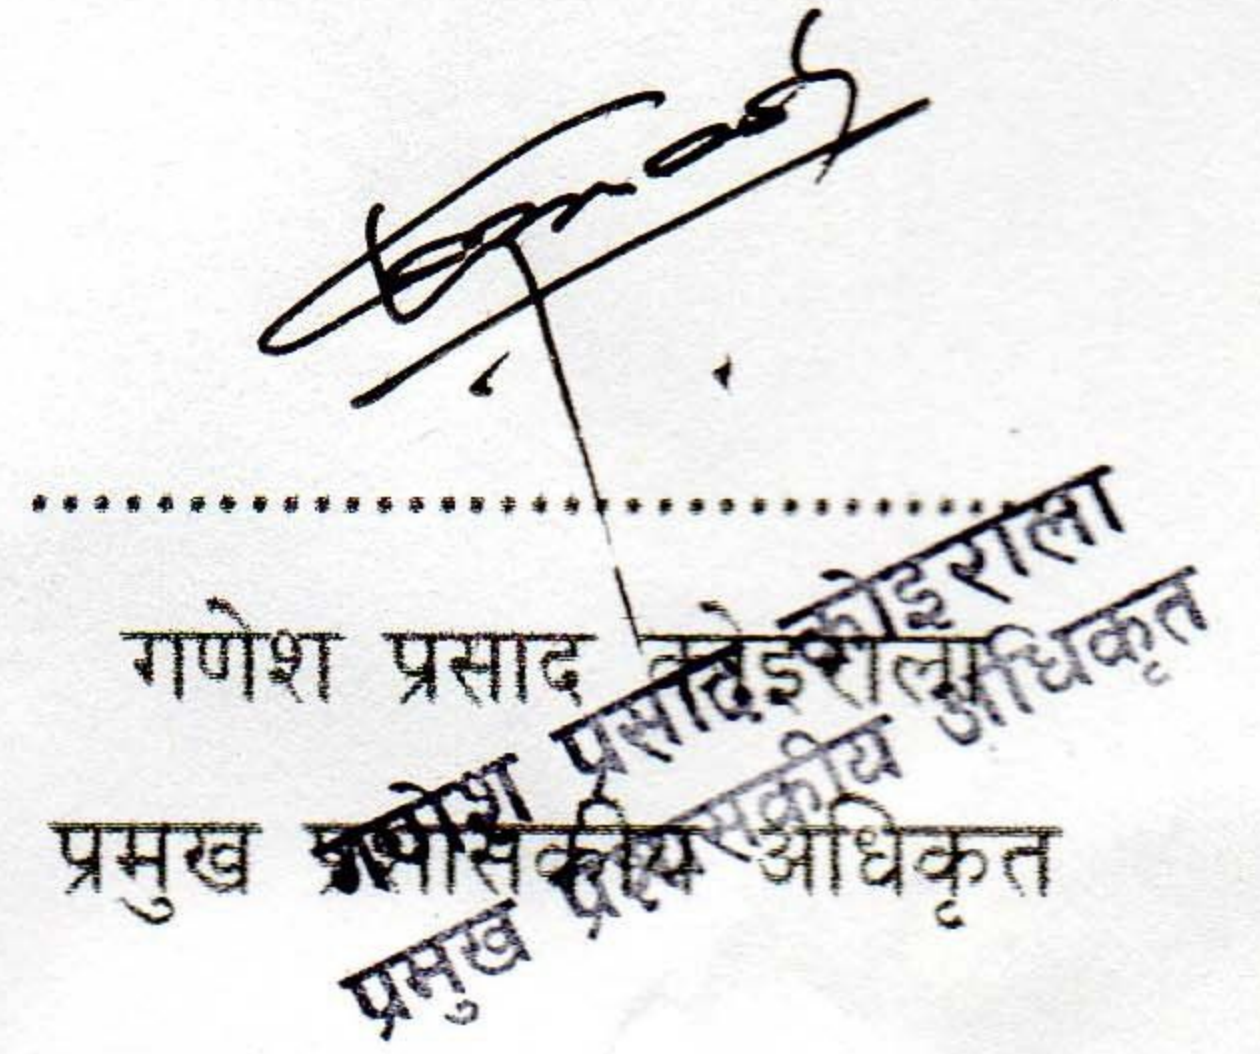 गणेश प्रसाद कोइराला
प्रमुख प्रशासकीय अधिकृत
गणेश प्रसाद कोइराला
प्रमुख प्रशासकीय अधिकृत